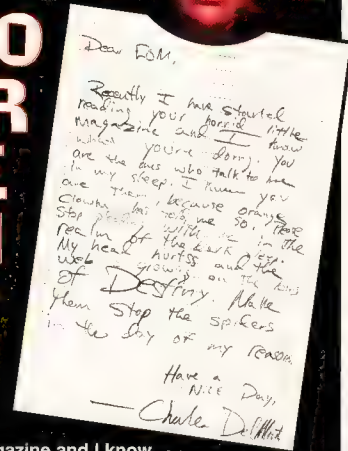 O
R
Dear EGM,
Recently I have started
reading your horrid little
magazine and I know
what you're doing. You
are the ones who talk to me
in my sleep. I know you
are them, because orange
clown has told me so. Please
stop with me in the
realm of the dark
My head hurtss and the
web growing on the
of Destiny. Make
them stop the spikers
in the day of my reason.
Have a
Nice Day,
— Charles
gazine and I know